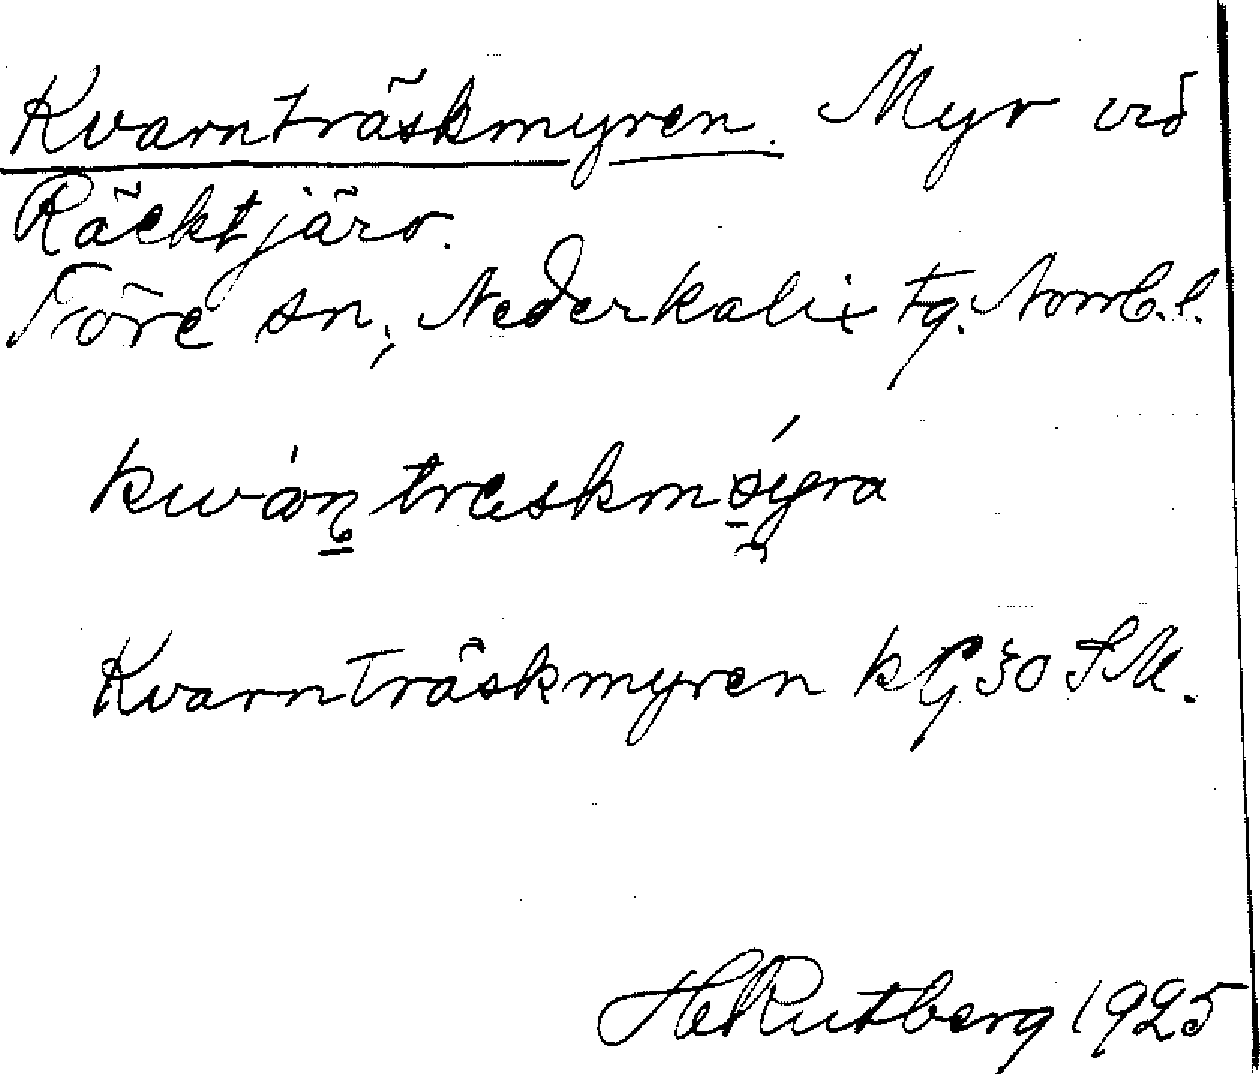 Kvarnträskmyren. Myr vid
Räcktjärv.
Töre sn, Nederkalix tg. Norrb. l.
kwąṇtræskmøyra
Kvarnträskmyren kG 30 SM.
H Rutberg 1925